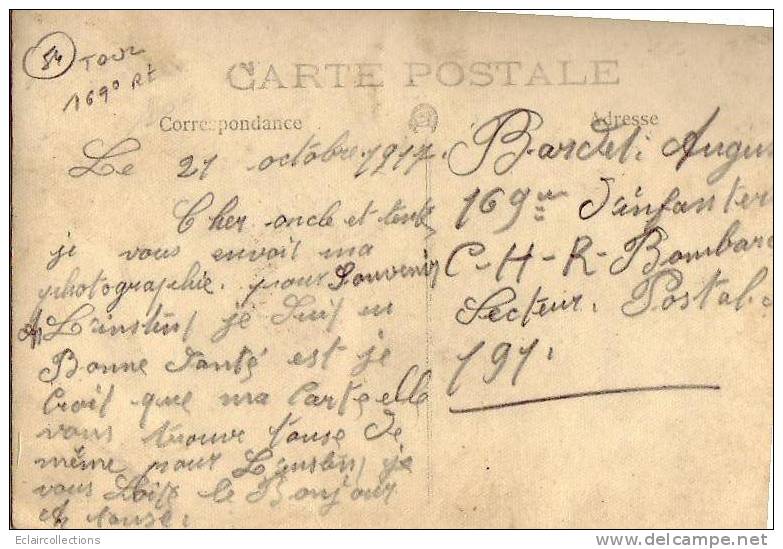 84 TOUL
169e Rt
CARTE POSTALE
Correspondance
Adresse
Le 21 octobre 1917.
Cher oncle et tente
je vous envoit ma
photographie. pour souvenir
L'instint je suit en
Bonne Santé est je
Croit que ma Carte elle
vous trouve touse De
même pour L'instint je
vous Loiss le Bonjour
touse.
Bardet. Augus
169em D'infanteri
C-H-R- Bombard
Secteur. Postal.
191.
Eclaircollections
www.delcampe.net